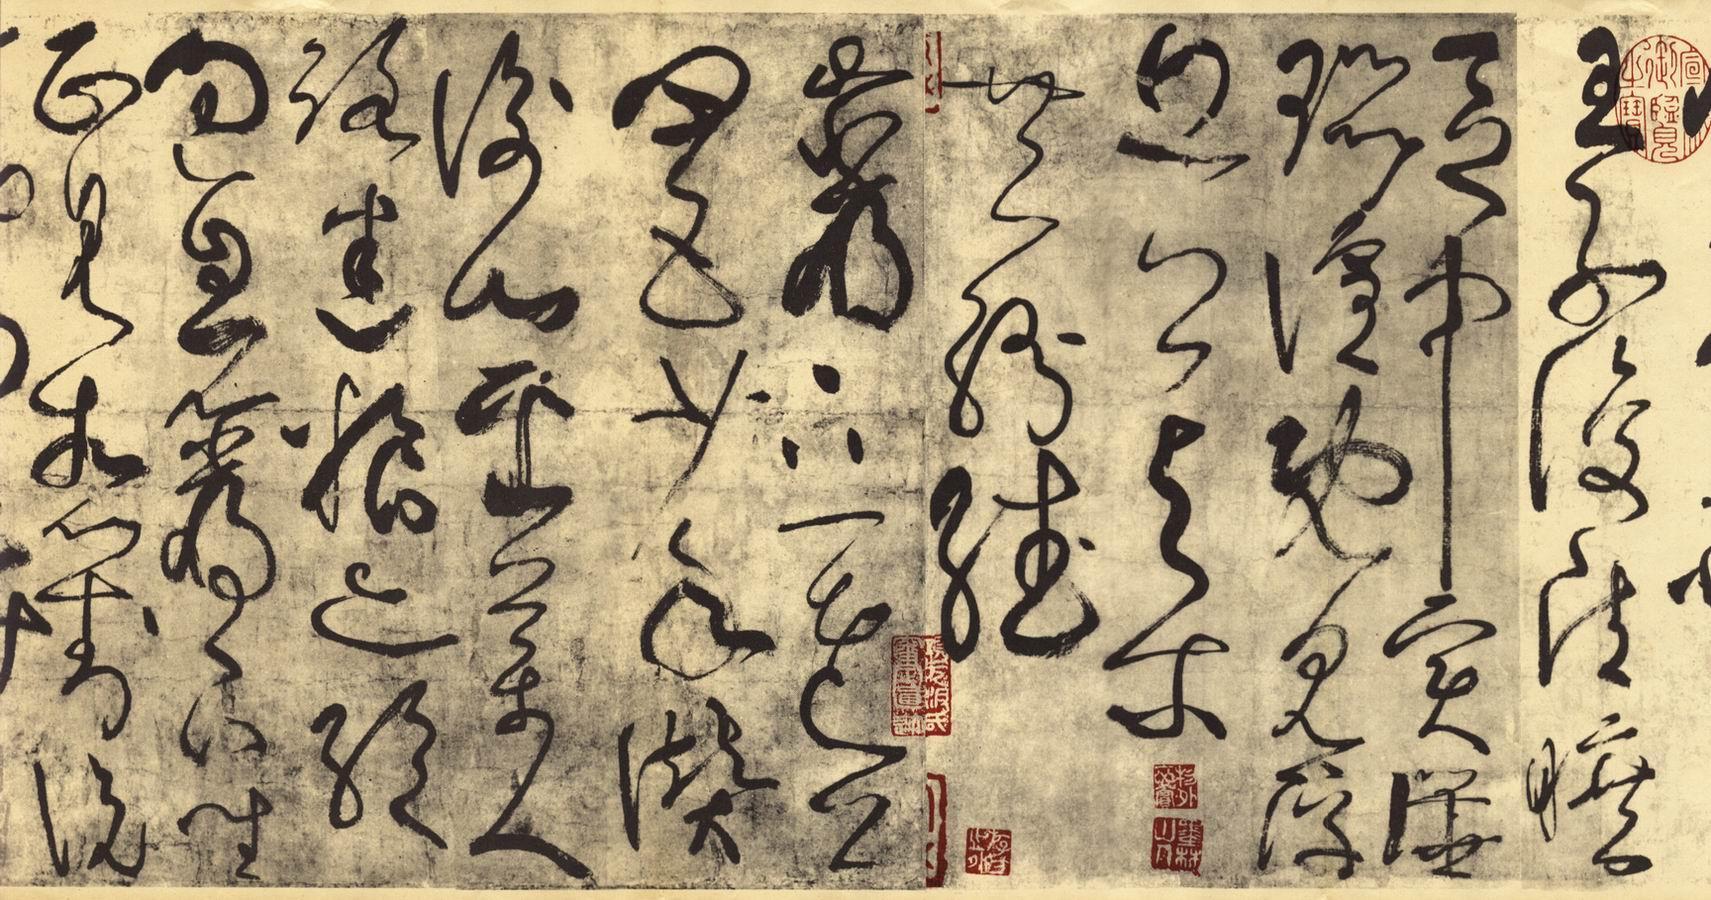 王子復清曠
區中實譁
囂喧既見浮
丘公與尔
共紛繙
巖下一老公
四五少年贊
衡山采藥人
路迷糧亦絕
過息巖下坐
正見相對說